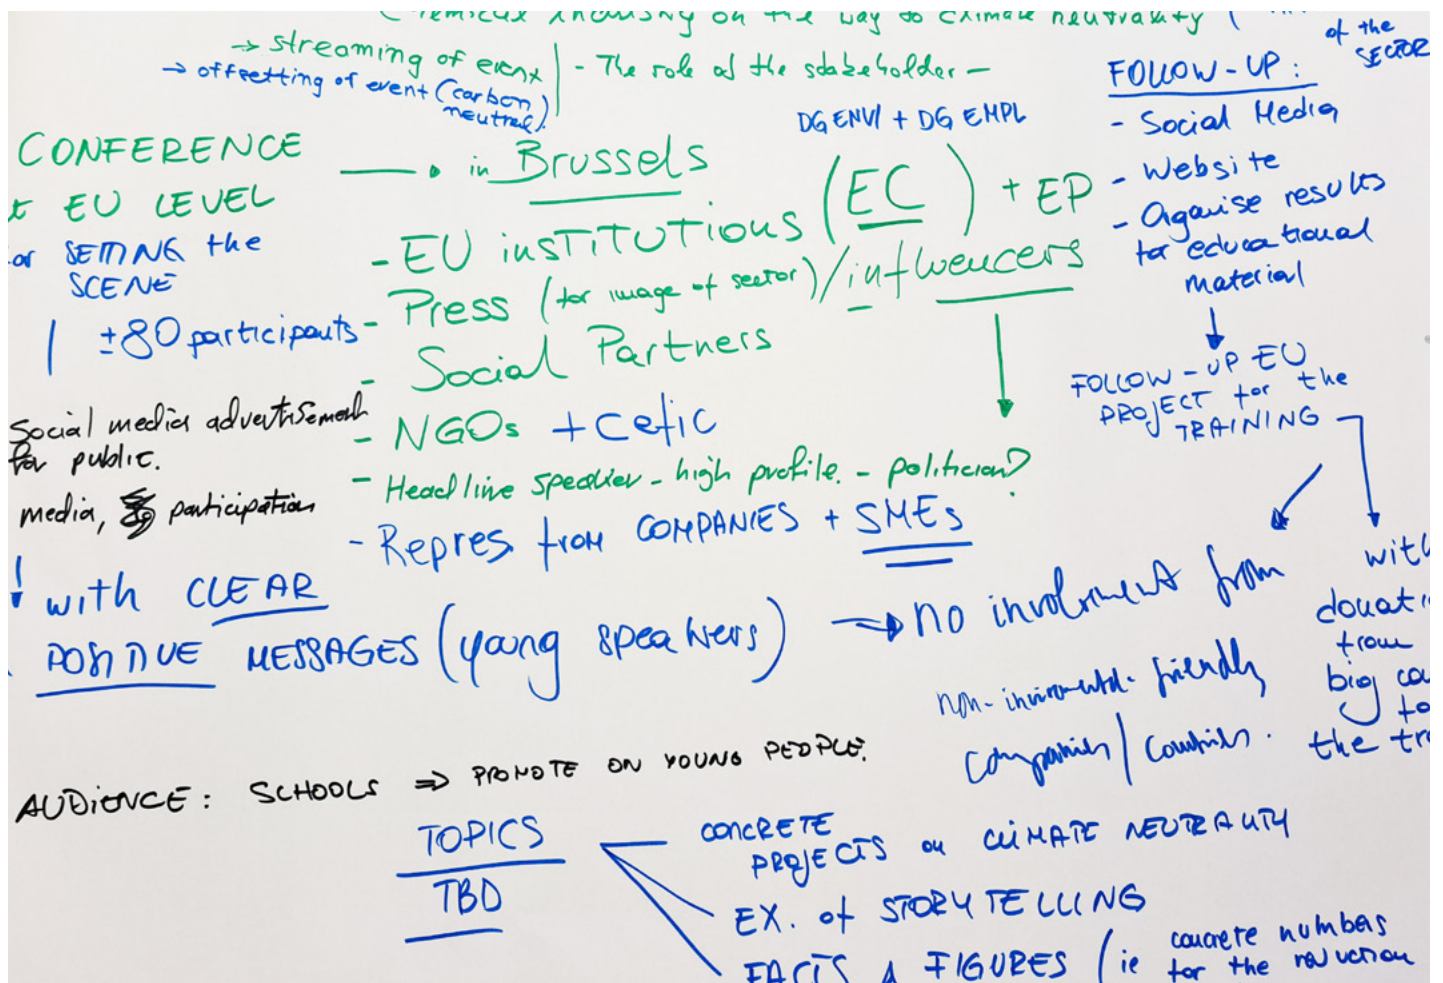 Chemical industry on the way to climate neutrality
→ streaming of event
→ offsetting of event (carbon
neutral).
- The role of the stakeholder -
of the
SECTOR
CONFERENCE
EU LEVEL
SETTING the
SCENE
± 80 participants
Social media advertisement
for public.
media, participation
with CLEAR
POSITIVE MESSAGES (young speakers)
→ in Brussels
DG ENVI + DG EMPL
- EU INSTITUTIONS (EC) + EP
- Press (for image of sector) / influencers
- Social Partners
- NGOs + Cefic
- Headline speaker - high profile. - politician?
- Repres from COMPANIES + SMEs
→ no involvment from
non- friendly
companies / countries.
FOLLOW-UP:
- Social Media
- Website
- Organise results
for educational
material
FOLLOW-UP EU
PROJECT for the
TRAINING
with
from
big
the
AUDIENCE: SCHOOLS ⇒ PROMOTE ON YOUNG PEOPLE.
TOPICS
TBD
CONCRETE
PROJECTS on CLIMATE NEUTRALITY
EX. of STORYTELLING
FACTS & FIGURES (ie concrete numbers
for the reduction